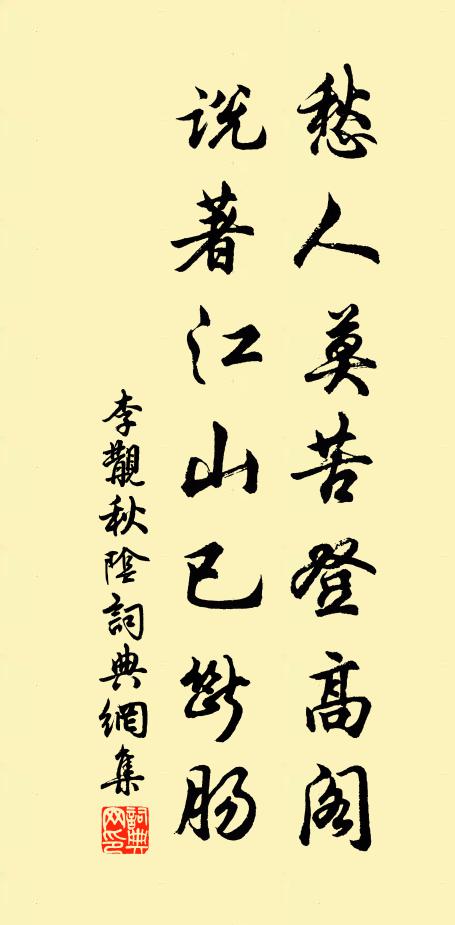 愁人莫苦登高阁
说著江山已断肠
李覯秋陰詞典網集
詞典网印